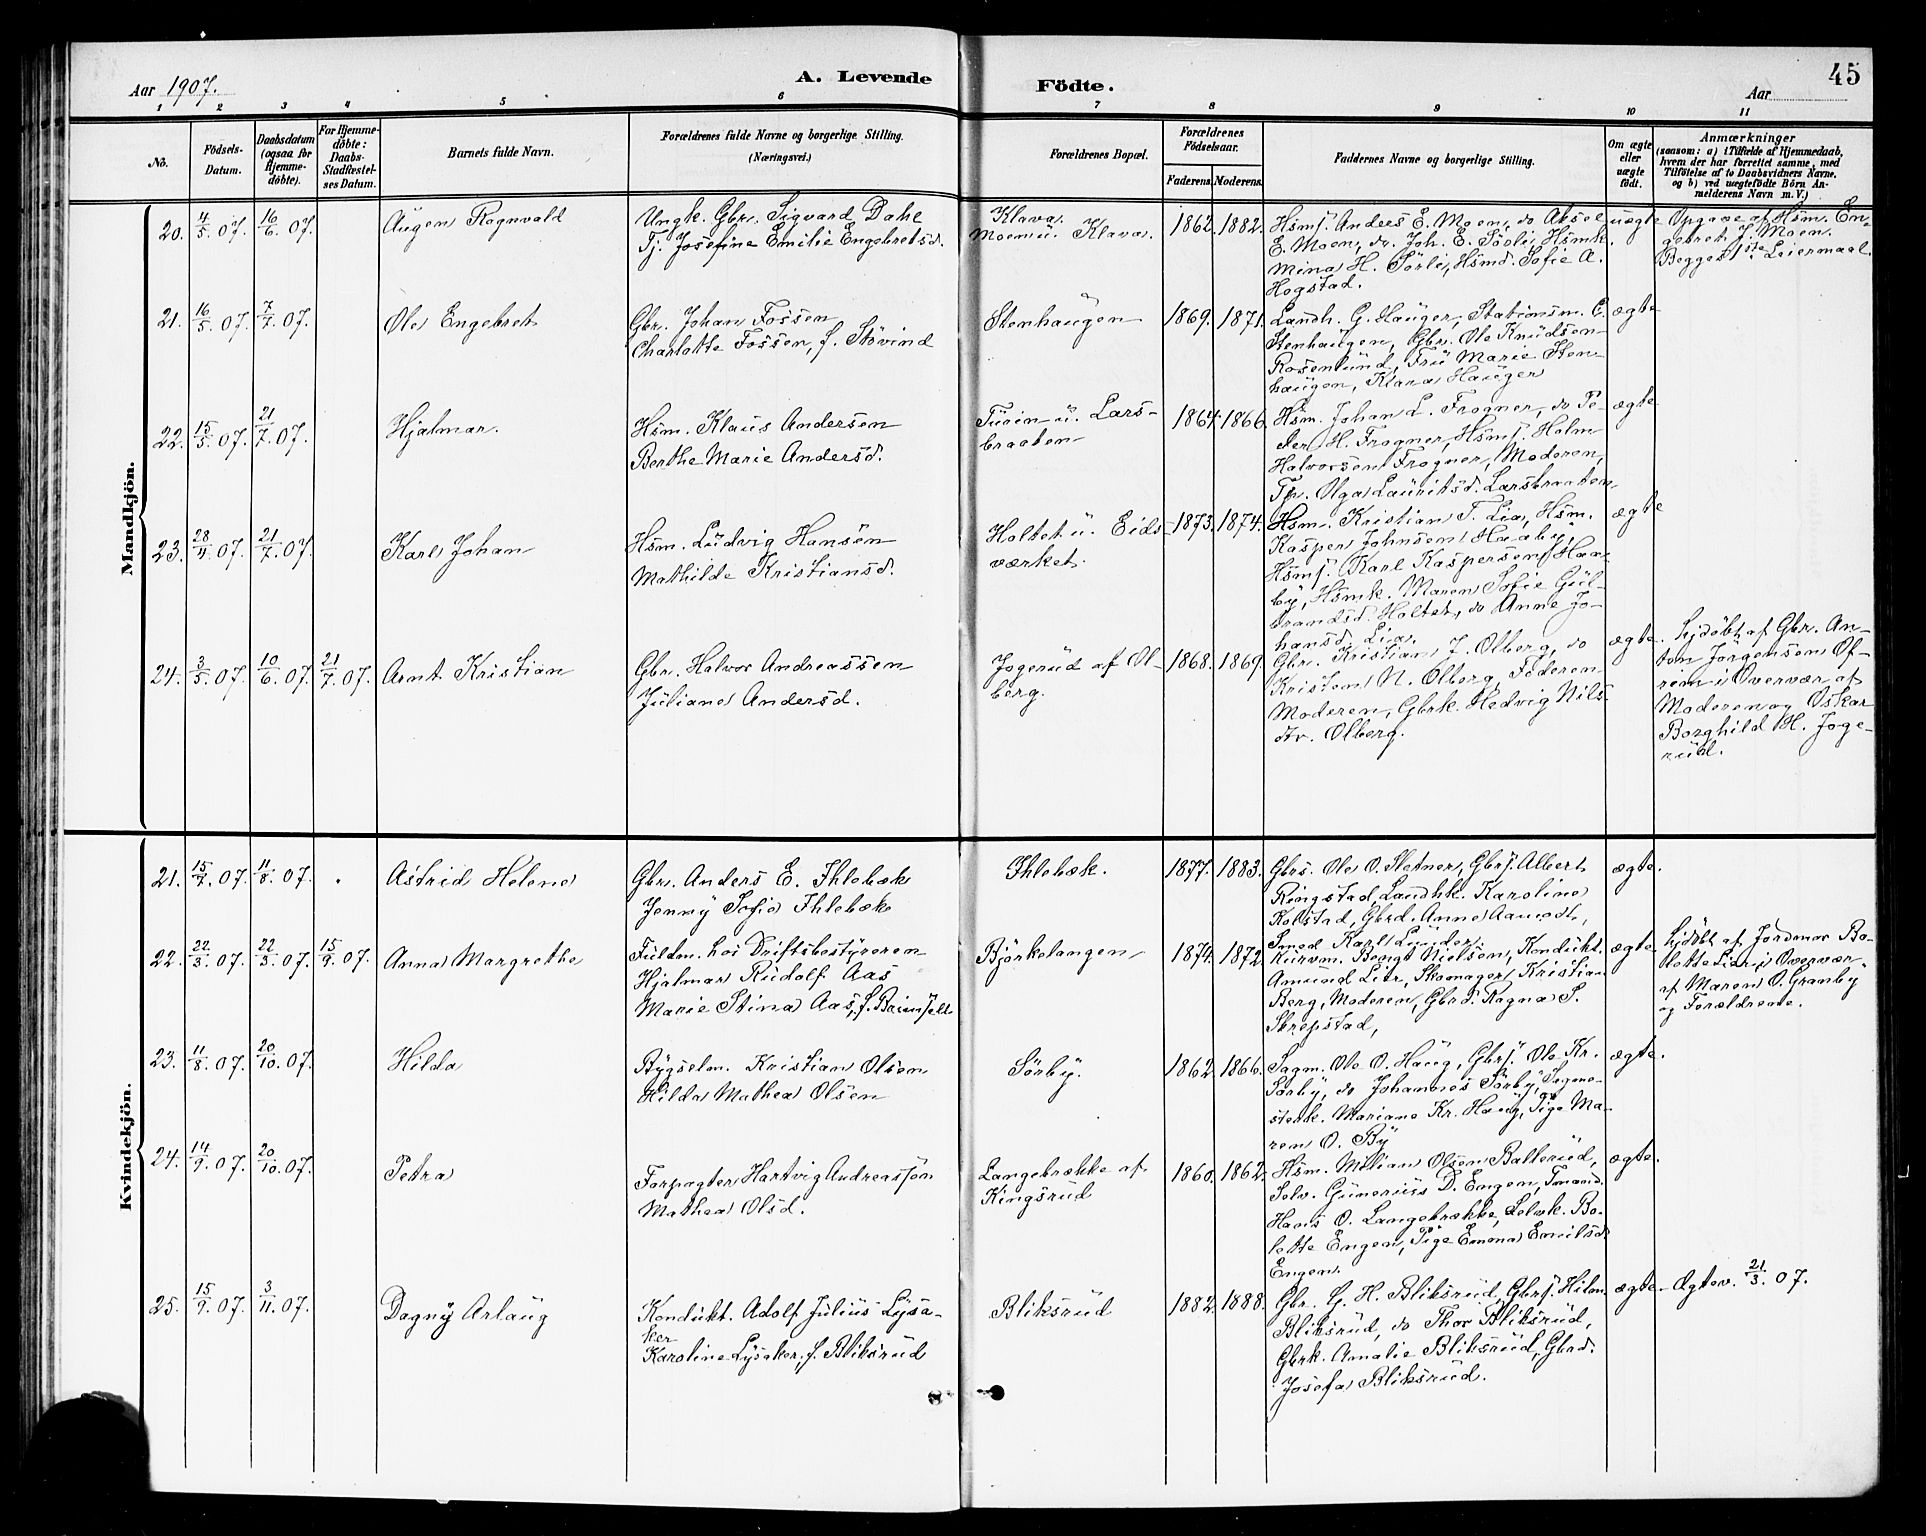 Aar 1907.
A. Levende
Födte.
45
Aar
1 2 3 4 5 6 7 8 9 10 11
No.
Födsels-Datum.
Daabsdatum (ogsaa for Hjemme-döbte).
For Hjemme-döbte: Daabs-Stadfæstel-ses Datum.
Barnets fulde Navn.
Forældrenes fulde Navne og borgerlige Stilling.
(Næringsvei.)
Forældrenes Bopæl.
Forældrenes Födselsaar.
Faderens. Moderens.
Faddernes Navne og borgerlige Stilling.
Om ægte eller uægte födt.
Anmærkninger
(saasom: a) i Tilfælde af Hjemmedaab,
hvem der har forrettet samme, med
Tilföielse af to Daabsvidners Navne.
og b) ved uægtefödte Börn An-
melderens Navn m. V.)
Mandkjön.
20. 4/5 07. 16/6 07.
Augen Rognvald
Ungk. Gbr. Sigvard Dahl
Tj. Josefine Emilie Engebretsd.
Klava.
Moen u. Klava.
1862. 1882.
Hsms. Anders E. Moen, do Aksel
E. Moen, do. Joh. E. Sörli, Hsmk.
Mina H. Sörli, Hsmd. Sofie A.
Hogstad.
uægte.
Opgave af Hsm. En-
gebret J. Moen.
Begges 1ste Leiermaal.
21. 16/5 07. 7/7 07.
Ole Engebret
Gbr. Johan Fossen
Charlotte Fossen, f. Stövind
Stenhaugen
1869. 1871.
Landh. G. Hauger, Stationsm. C.
Stenhaugen, Gbr. Ole Knudsen
Rosenlund, Fru Marie Sten-
haugen, Klara Hauger
ægte
22. 15/5 07. 21/7 07.
Hjalmar.
Hsm. Klaus Andersen
Berthe Marie Andersd.
Tuien u. Lars-
braaten
1864. 1866.
Hsm. Johan L. Frogner, do Pe-
der H. Frogner, Hsms. Holm
Halvorsen Frogner, Moderen,
Tp. Olga Lauritsd. Larsbraaten
ægte
23. 28/4 07. 21/7 07.
Karl Johan
Hsm. Ludvig Hansen
Mathilde Kristiansd.
Holtet u. Eids-
værket.
1873. 1874.
Hsm. Kristian T. Lia, Hsm.
Kasper Johnsen Haaby,
Hsms. Karl Kaspersen Haa-
by, Hsmk. Maren Sofie Gul-
brandsd. Holtet, do Anne Jo-
hansd. Lia.
ægte
24. 3/5 07. 10/6 07. 21/7 07.
Arnt Kristian
Gbr. Halvor Andreassen
Juliane Andersd.
Jogerud af Ol-
berg.
1868. 1869.
Gbr. Kristian J. Olberg, do
Kristen N. Olberg, Faderen
Moderen, Gbrk. Hedvig Nils-
dtr. Olberg.
ægte.
Hjdöbt af Gbr. An-
ton Jörgensen Of-
rein i Overvær af
Moderen og Oskar
Borghild H. Joge-
rud.
Kvindekjön.
21. 15/7 07. 11/8 07.
Astrid Helene
Gbr. Anders E. Ihlebæk
Jenny Sofie Ihlebæk
Ihlebæk.
1877. 1883.
Gbrs. Ole O. Sletner, Gbrs. Albert
Ringstad, Landhk. Karoline
Kolstad, Gbrd. Anne Aamodt,
Smed Karl Linder.
ægte.
22. 22/3 07. 22/3 07. 15/9 07.
Anna Margrethe
Fuldm. hos Driftsbestyreren
Hjalmar Rudolf Aas
Marie Stina Aas, f. Brimfelt
Björkelangen
1874. 1872
Kurvm. Bengt Nielsen, Kondukt.
Amund Lier, Skomager Kristian
Berg, Moderen, Gbrd. Ragna S.
Skrepstad,
ægte
Hjdöbt af Jordmor Bo-
lette Lier i Overvær
af Maren O. Granby
og Forældrene.
23. 11/8 07. 20/10 07.
Hilda
Bygselm. Kristian Olsen
Hilda Mathea Olsen
Sörby.
1862. 1866.
Sagm. Ole O. Haug, Gbrs. Ole Kr.
Sörby, do Johannes Sörby, Sagme-
sterk. Mariane Kr. Haug, Pige Ma-
ren O. By
ægte.
24. 14/9 07. 20/10 07.
Petra
Forpagter Hartvig Andreassen
Mathea Olsd.
Langebrække af
Kingsrud
1860. 1862.
Hsm. Milian Olsen Ballerud,
Selv. Gunerius D. Engen, Tmand.
Hans O. Langebrække, Selvk. Bo-
lette Engen, Pige Emma Emilsd.
Engen.
ægte.
25. 15/9 07. 3/11 07.
Dagny Arlaug
Kondukt. Adolf Julius Lysa-
ker
Karoline Lysaker, f. Bliksrud
Bliksrud
1882. 1888.
Gbr. G. H. Bliksrud, Gbrs. Hilm.
Bliksrud, do Thor Bliksrud,
Gbrk. Amalie Bliksrud, Gbrd.
Josefa Bliksrud.
ægte
Ægtev. 21/3 07.